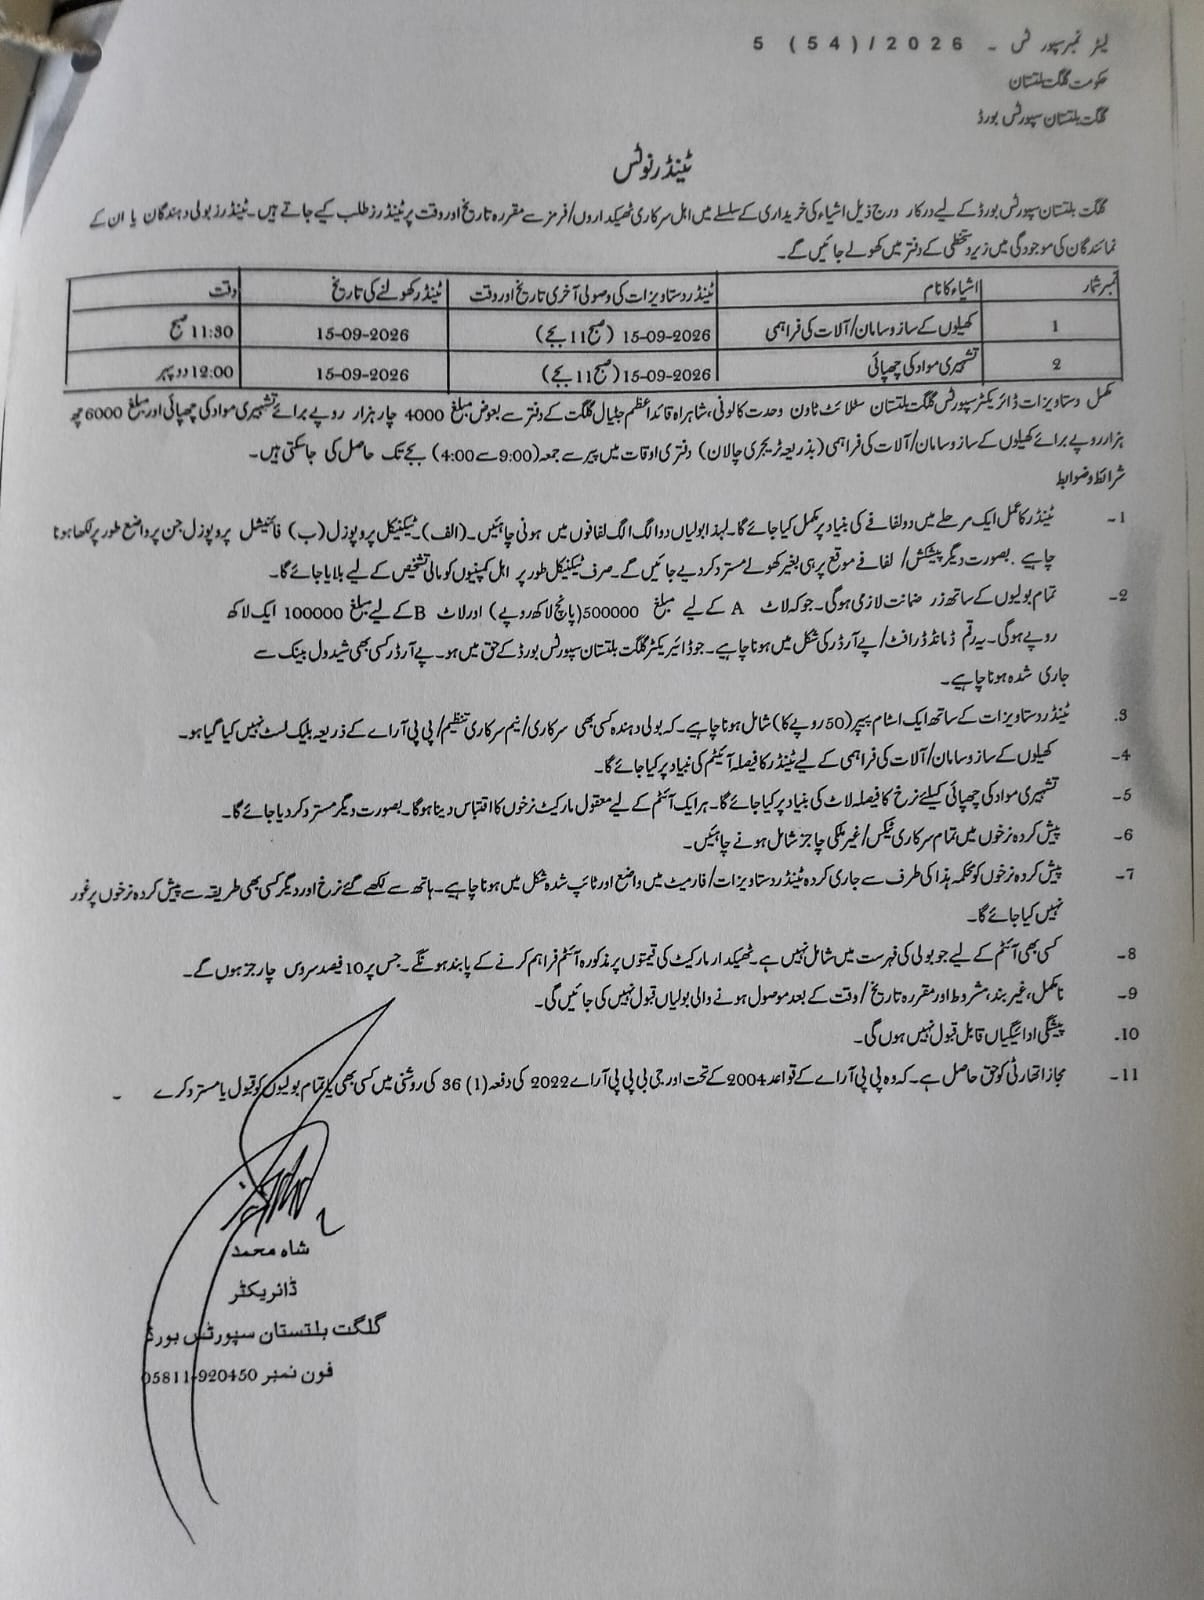 لیٹر نمبر سپورٹس ۔ 5 (54)/2026
حکومت گلگت بلتستان
گلگت بلتستان سپورٹس بورڈ
ٹینڈر نوٹس
گلگت بلتستان سپورٹس بورڈ کے لیے درکار درج ذیل اشیاء کی خریداری کے سلسلے میں اہل سرکاری ٹھیکداروں/فرمز سے مقررہ تاریخ اور وقت پر ٹینڈرز طلب کیے جاتے ہیں۔ ٹینڈرز بولی دہندگان یا ان کے
نمائندگان کی موجودگی میں زیر دستخطی کے دفتر میں کھولے جائیں گے۔
نمبر شمار اشیاء کا نام ٹینڈر دستاویزات کی وصولی آخری تاریخ اور وقت ٹینڈر کھولنے کی تاریخ وقت
1 کھیلوں کے ساز و سامان/آلات کی فراہمی 15-09-2026 (صبح 11 بجے) 15-09-2026 11:30 صبح
2 تشہیری مواد کی چھپائی 15-09-2026 (صبح 11 بجے) 15-09-2026 12:00 دوپہر
مکمل دستاویزات ڈائریکٹر سپورٹس گلگت بلتستان سٹلائٹ ٹاون وحدت کالونی، شاہراہ قائد اعظم جٹیال گلگت کے دفتر سے بعوض مبلغ 4000 چار ہزار روپے برائے تشہیری مواد کی چھپائی اور مبلغ 6000 چھ
ہزار روپے برائے کھیلوں کے ساز و سامان/آلات کی فراہمی (بذریعہ ٹریجری چالان) دفتری اوقات میں پیر سے جمعہ (9:00 سے 4:00) بجے تک حاصل کی جاسکتی ہیں۔
شرائط و ضوابط
1۔ ٹینڈر کا عمل ایک مرحلے میں دو لفافے کی بنیاد پر مکمل کیا جائے گا۔ لہذا بولیاں دو الگ الگ لفافوں میں ہونی چاہئیں۔ (الف)۔ ٹیکنیکل پروپوزل (ب) فائنینشل پروپوزل جن پر واضع طور پر لکھا ہونا
چاہیے . بصورت دیگر پیشکش/ لفافے موقع پر ہی بغیر کھولے مسترد کر دیے جائیں گے۔ صرف ٹیکنیکل طور پر اہل کمپنیوں کو مالی تشخیص کے لیے بلایا جائے گا۔
2۔ تمام بولیوں کے ساتھ زر ضمانت لازمی ہوگی۔ جو کہ لاٹ A کے لیے مبلغ 500000 (پانچ لاکھ روپے) اور لاٹ B کے لیے مبلغ 100000 ایک لاکھ
روپے ہوگی۔ یہ رقم ڈمانڈ ڈرافٹ/ پے آرڈر کی شکل میں ہونا چاہیے۔ جو ڈائریکٹر گلگت بلتستان سپورٹس بورڈ کے حق میں ہو۔ پے آرڈر کسی بھی شیڈول بینک سے
جاری شدہ ہونا چاہیے۔
3. ٹینڈر دستاویزات کے ساتھ ایک اسٹام پیپر (50 روپے کا) شامل ہونا چاہیے۔ کہ بولی دہندہ کسی بھی سرکاری/ نیم سرکاری تنظیم/ پی پی آر اے کے ذریعہ بلیک لسٹ نہیں کیا گیا ہو۔
4۔ کھیلوں کے ساز و سامان/آلات کی فراہمی کے لیے ٹینڈر کا فیصلہ آئیٹم کی بنیاد پر کیا جائے گا۔
5۔ تشہیری مواد کی چھپائی کیلئے نرخ کا فیصلہ لاٹ کی بنیاد پر کیا جائے گا۔ ہر ایک آئٹم کے لیے معقول مارکیٹ نرخوں کا اقتباس دینا ہوگا۔ بصورت دیگر مسترد کر دیا جائے گا۔
6۔ پیش کردہ نرخوں میں تمام سرکاری ٹیکس/ غیر ملکی چارجز شامل ہونے چاہئیں۔
7۔ پیش کردہ نرخوں کو محکمہ ہذا کی طرف سے جاری کردہ ٹینڈر دستاویزات/ فارمیٹ میں واضع اور ٹائپ شدہ شکل میں ہونا چاہیے۔ ہاتھ سے لکھے گئے نرخ اور دیگر کسی بھی طریقہ سے پیش کردہ نرخوں پر غور
نہیں کیا جائے گا۔
8۔ کسی بھی آئٹم کے لیے جو بولی کی فہرست میں شامل نہیں ہے۔ ٹھیکدار مارکیٹ کی قیمتوں پر مذکورہ آئٹم فراہم کرنے کے پابند ہونگے۔ جس پر 10 فیصد سروس چارجز ہوں گے۔
9۔ نامکمل، غیر بند، مشروط اور مقررہ تاریخ/ وقت کے بعد موصول ہونے والی بولیاں قبول نہیں کی جائیں گی۔
10. پیشگی ادائیگیاں قابل قبول نہیں ہوں گی۔
11۔ مجاز اتھارٹی کو حق حاصل ہے۔ کہ وہ پی پی آر اے کے قواعد 2004 کے تحت اور جی بی پی پی آر اے 2022 کی دفعہ (1) 36 کی روشنی میں کسی بھی یا تمام بولیوں کو قبول یا مسترد کرے ۔
شاہ محمد
ڈائریکٹر
گلگت بلتستان سپورٹس بورڈ
فون نمبر 05811-920450